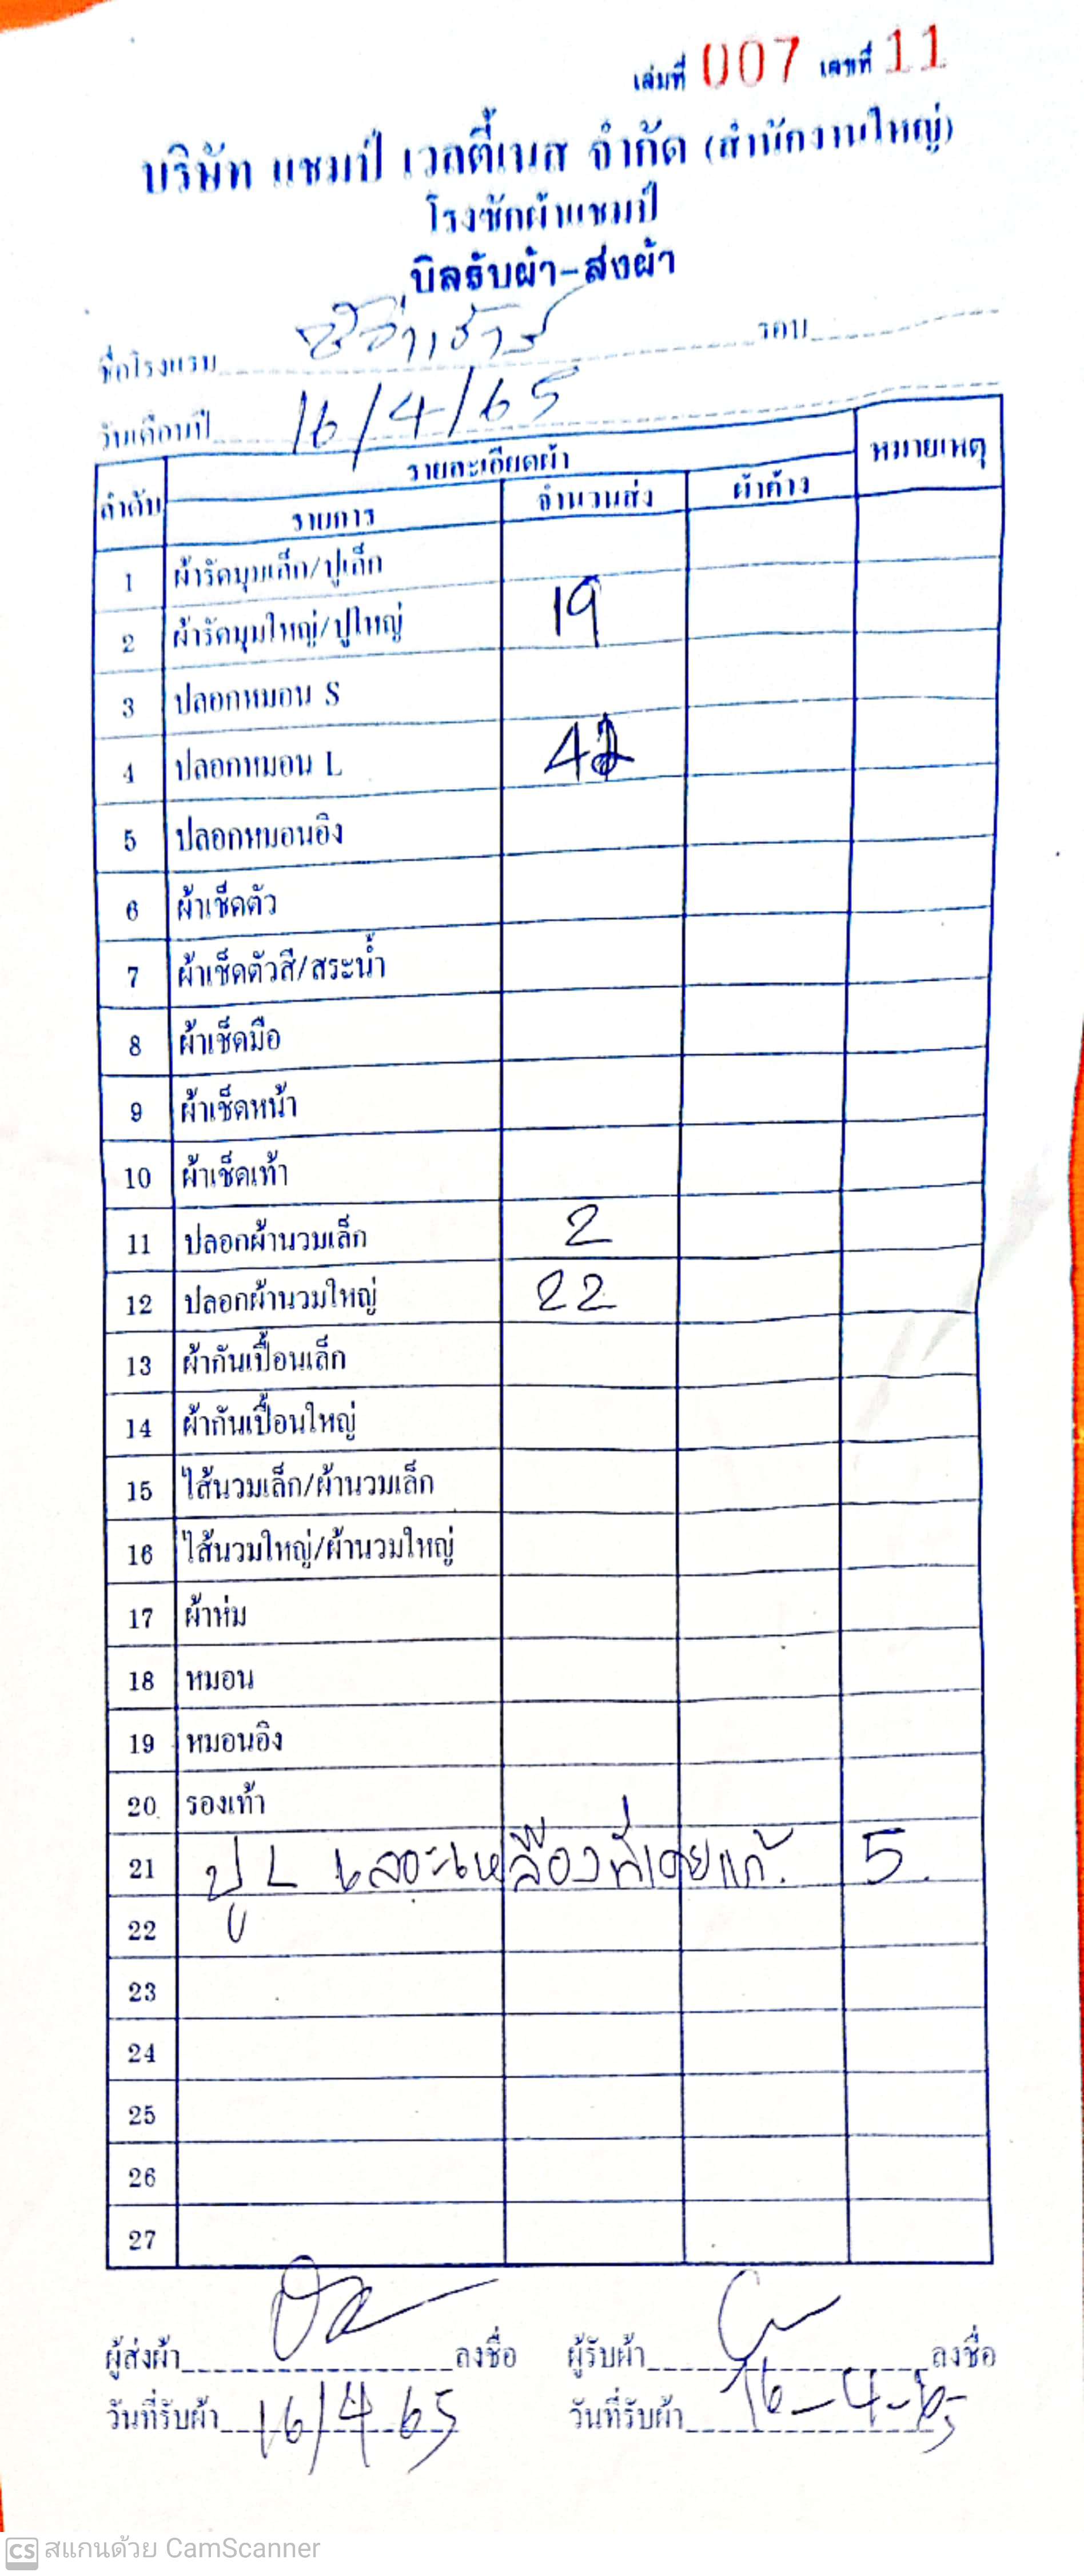 เล่มที่ 007 เลขที่ 11
บริษัท แชมป์ เวลตี้เนส จำกัด (สำนักงานใหญ่)
โรงซักผ้าแชมป์
บิลรับผ้า-ส่งผ้า
ชื่อโรงแรม รอบ
วันเดือนปี 16/4/65
ลำดับ รายละเอียดผ้า หมายเหตุ
รายการ จำนวนส่ง ผ้าค้าง
1 ผ้ารัดมุมเล็ก/ปูเล็ก
2 ผ้ารัดมุมใหญ่/ปูใหญ่ 19
3 ปลอกหมอน S
4 ปลอกหมอน L 42
5 ปลอกหมอนอิง
6 ผ้าเช็ดตัว
7 ผ้าเช็ดตัวสี/สระน้ำ
8 ผ้าเช็ดมือ
9 ผ้าเช็ดหน้า
10 ผ้าเช็ดเท้า
11 ปลอกผ้านวมเล็ก 2
12 ปลอกผ้านวมใหญ่ 22
13 ผ้ากันเปื้อนเล็ก
14 ผ้ากันเปื้อนใหญ่
15 ไส้นวมเล็ก/ผ้านวมเล็ก
16 ไส้นวมใหญ่/ผ้านวมใหญ่
17 ผ้าห่ม
18 หมอน
19 หมอนอิง
20 รองเท้า
21 ปู L เลอะเหลืองที่เคยแก้. 5.
22
23
24
25
26
27
ผู้ส่งผ้า ลงชื่อ ผู้รับผ้า ลงชื่อ
วันที่รับผ้า 16/4 65 วันที่รับผ้า 16-4-65
CS สแกนด้วย CamScanner